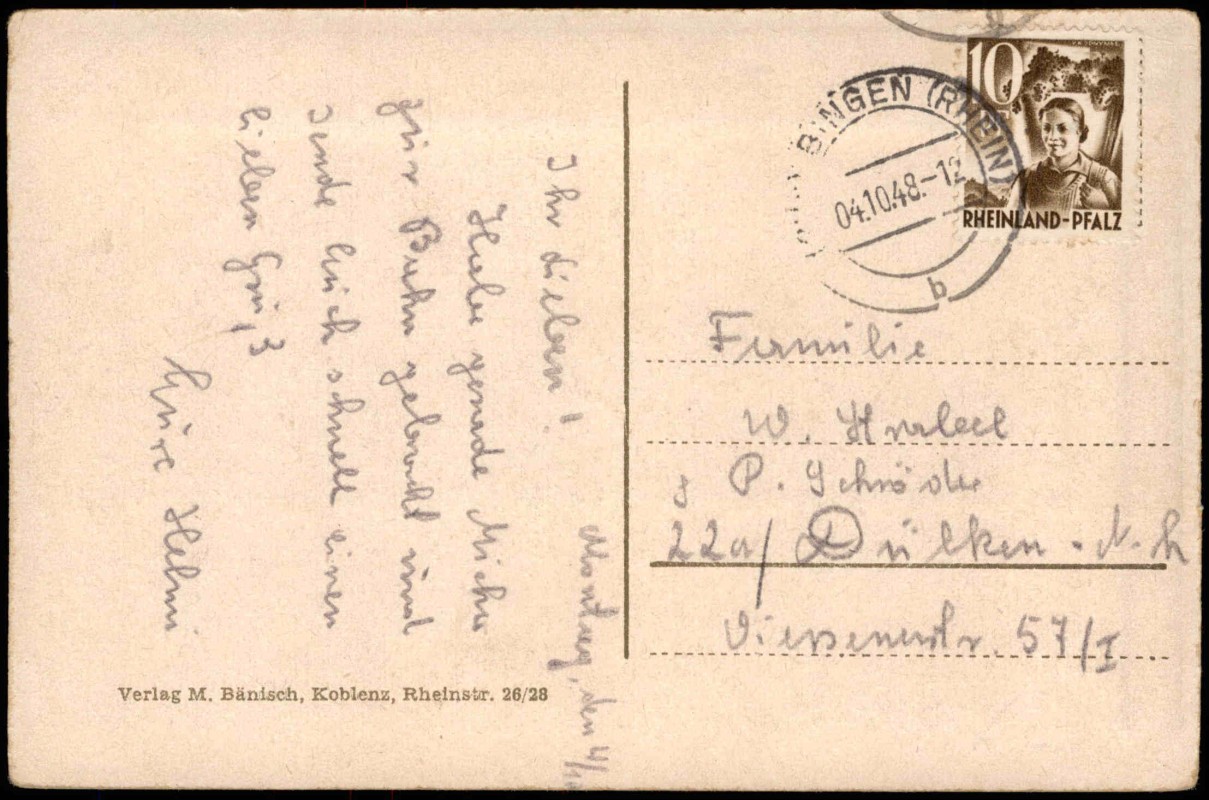 Montag, den 4/10
Ihr Lieben!
Habe gerade Michu
zur Bahn gebracht und
sende Euch schnell einen
lieben Gruß
Eure Helmi
Verlag M. Bänisch, Koblenz, Rheinstr. 26/28
10
RHEINLAND-PFALZ
BINGEN (RHEIN)
04.10.48.-12
b
Familie
W.
P. Schröder
22a/ Dülken
Viersenerstr. 57/I